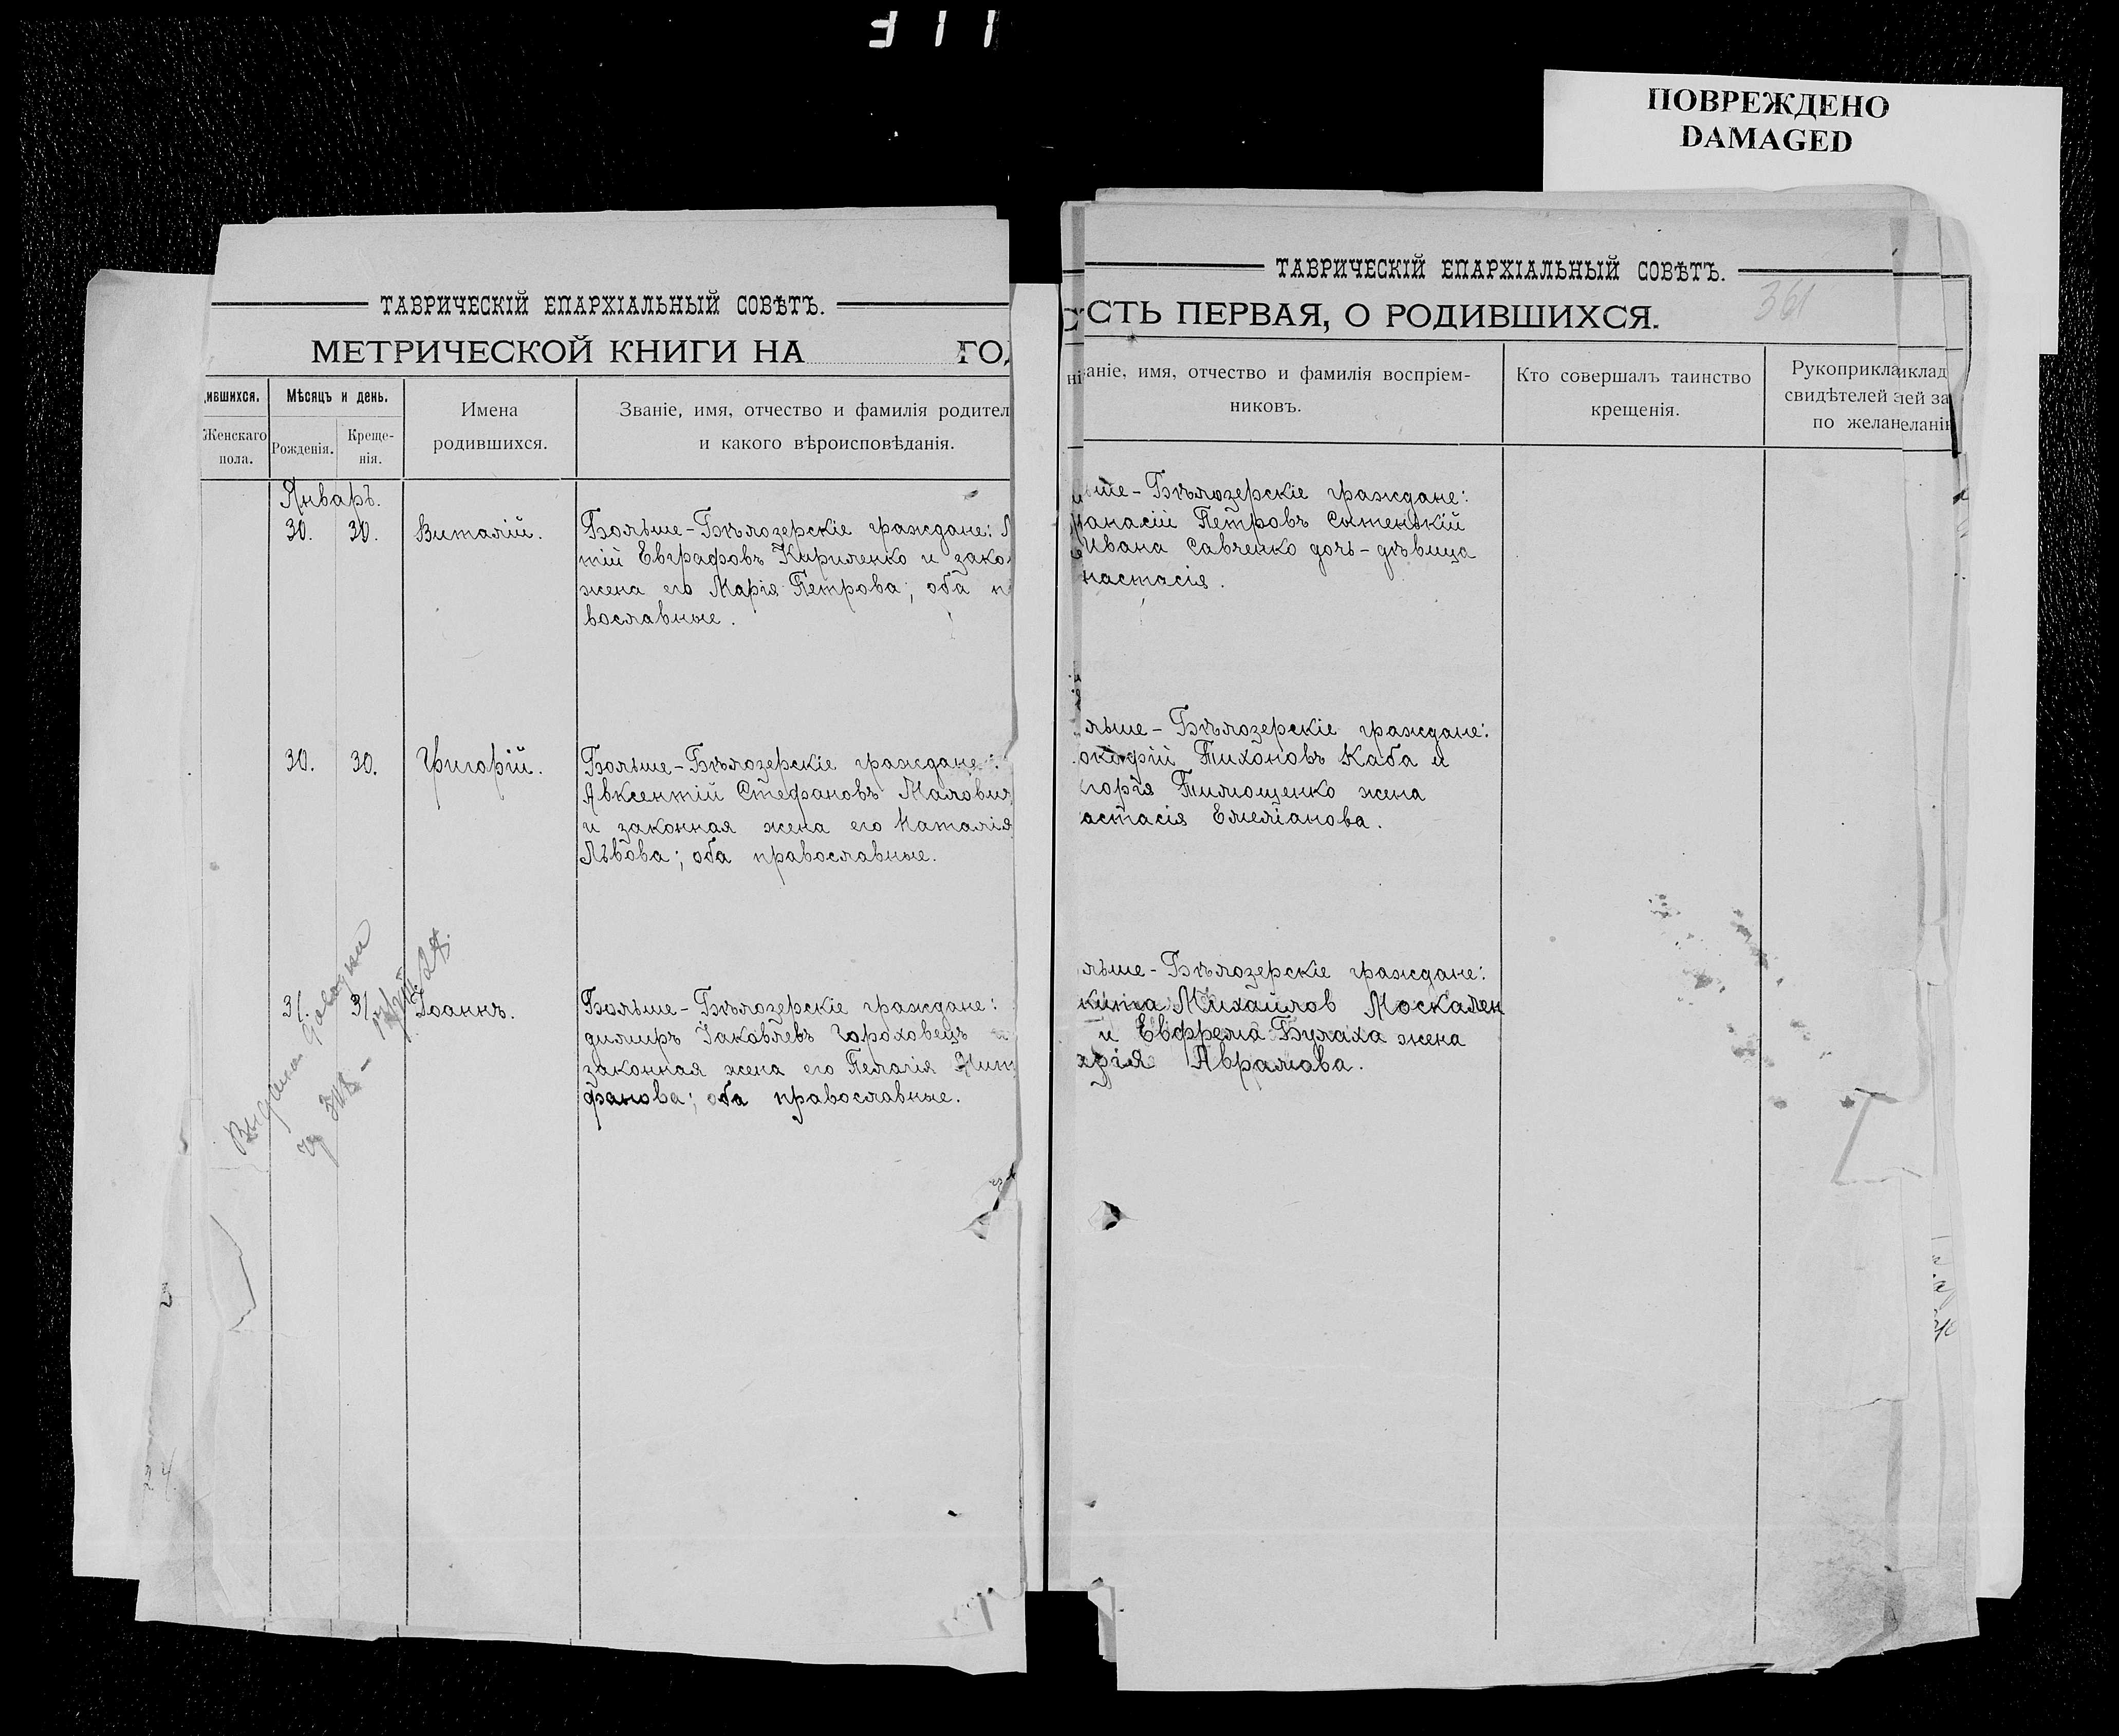 ПОВРЕЖДЕНО
DAMAGED
ТАВРИЧЕСКІЙ ЕПАРХІАЛЬНЫЙ СОВѢТЪ.
МЕТРИЧЕСКОЙ КНИГИ НА ГОД
ившихся.
Мѣсяцъ и день.
Женскаго пола.
Рожденія.
Креще-
нія.
Имена
родившихся.
Званіе, имя, отчество и фамилія родител
и какого вѣроисповѣданія.
Январь.
30. 30. Виталій.
Больше-Бѣлозерскіе граждане:
тій Евграфовъ Кириленко и зако
жена его Марія Петрова; оба п
вославные.
30. 30. Григорій.
Больше-Бѣлозерскіе граждане:
Авксентій Стефановъ Малович
и законная жена его Наталія
Львова; оба православные.
31. 31. Іоаннъ.
Больше-Бѣлозерскіе граждане:
димиръ Іаковлевъ Гороховецъ и
законная жена его Пелагія Мит
фанова; оба православные.
ТАВРИЧЕСКІЙ ЕПАРХІАЛЬНЫЙ СОВѢТЪ.
СТЬ ПЕРВАЯ, О РОДИВШИХСЯ.
361
аніе, имя, отчество и фамилія воспріем-
никовъ.
Кто совершалъ таинство
крещенія.
Рукоприкла
свидѣтелей
по желан
ьше-Бѣлозерскіе граждане:
анасій Петровъ Сытенькій
Ивана Савченко дочь-дѣвица
настасія.
льше-Бѣлозерскіе граждане:
Тихоновъ Каба и
горія Тимощенко жена
астасія Емеліанова.
льше-Бѣлозерскіе граждане:
кита Михаилов Москален
и Евфрема Булаха жена
рія Аврамова.